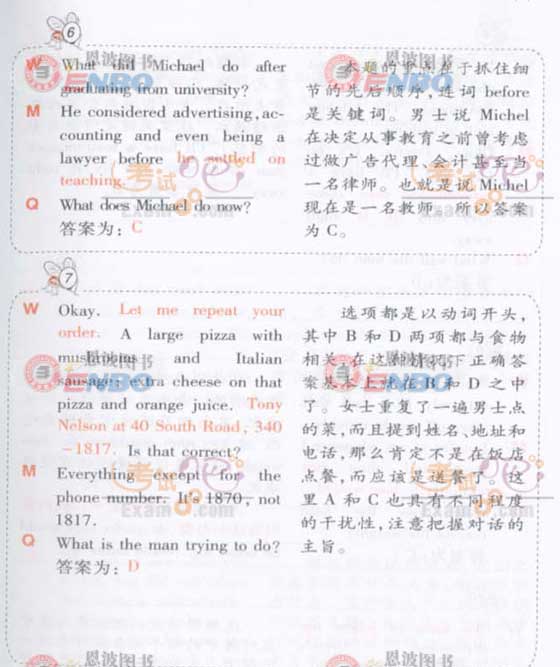 6
W What did Michael do after
graduating from university?
M He considered advertising, ac-
counting and even being a
lawyer before he settled on
teaching.
Q What does Michael do now?
答案为：C
本题的重点在于抓住细
节的先后顺序，连词 before
是关键词。男士说 Michel
在决定从事教育之前曾考虑
过做广告代理、会计甚至当
一名律师。也就是说 Michel
现在是一名教师，所以答案
为 C。
7
W Okay. Let me repeat your
order. A large pizza with
mushrooms and Italian
sausage, extra cheese on that
pizza and orange juice. Tony
Nelson at 40 South Road, 340
-1817. Is that correct?
M Everything except for the
phone number. It's 1870, not
1817.
Q What is the man trying to do?
答案为：D
选项都是以动词开头，
其中 B 和 D 两项都与食物
相关，在这种情况下正确答
案基本上就在 B 和 D 之中
了。女士重复了一遍男士点
的菜，而且提到姓名、地址和
电话，那么肯定不是在饭店
点餐，而应该是送餐了。这
里 A 和 C 也具有不同程度
的干扰性，注意把握对话的
主旨。
恩波图书
ENBO
恩波图书
ENBO
考试吧
Exam8.com
考试吧
Exam8.com
恩波图书
ENBO
恩波图书
ENBO
考试吧
Exam8.com
考试吧
Exam8.com
恩波图书
恩波图书